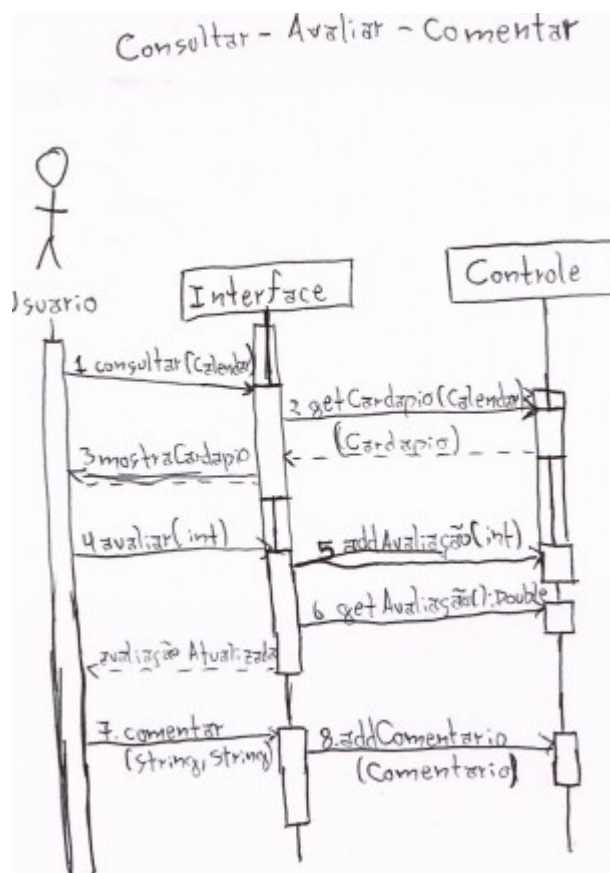 Consultar - Avaliar - Comentar
Usuario
Interface
Controle
1 consultar(Calendar)
2 getCardapio(Calendar)
(Cardapio)
3 mostraCardapio
4 avaliar(int)
5 addAvaliação(int)
6 getAvaliação():Double
avaliação Atualizada
7. comentar
(String, String)
8. addComentario
(Comentario)